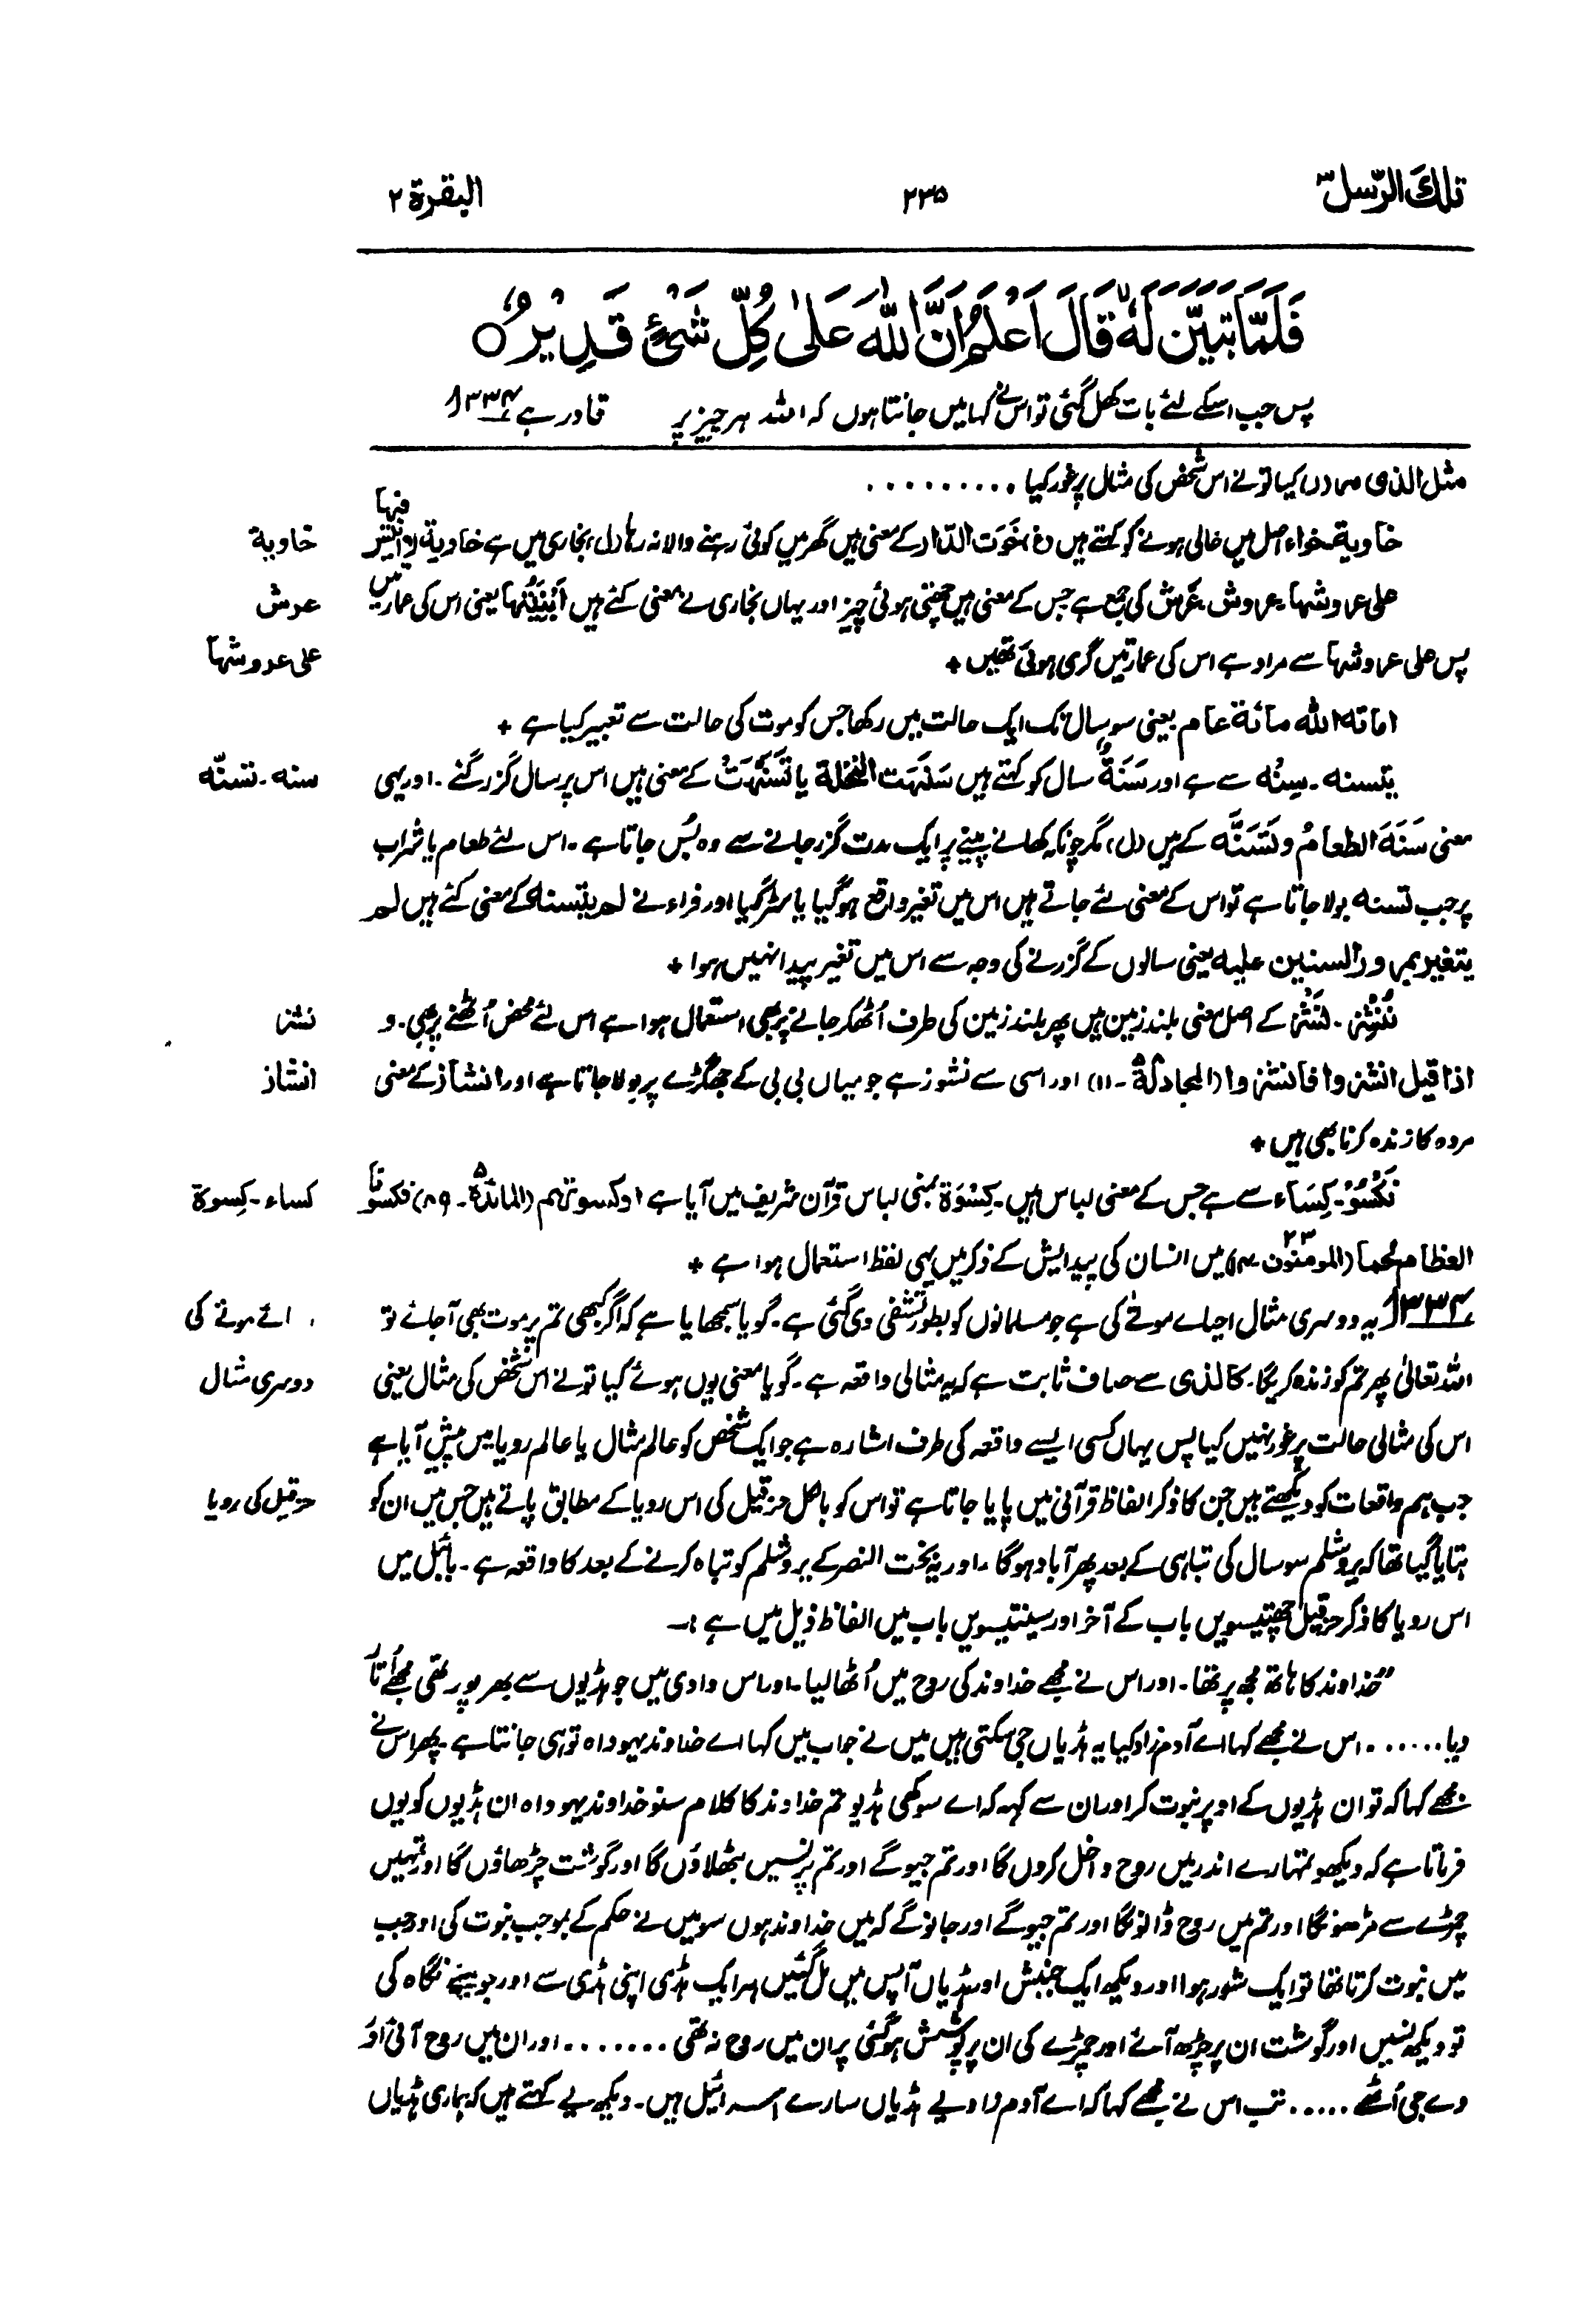 تلك الرّسل ٣
٢٣٥
البقرة ٢
فَلَمَّا تَبَيَّنَ لَهٗ قَالَ اَعْلَمُ اَنَّ اللّٰهَ عَلٰى كُلِّ شَیْءٍ قَدِیْرٌ ○
پس جب اسکے لئے بات کھل گئی تو اس نے کہا میں جانتا ہوں کہ اللہ ہر چیز پر قادر ہے ۳۳۴
مثل الذی مراد یوں کیا تو نے اس شخص کی مثال پر غور کیا .........
خاویة خواء اصل میں خالی ہونے کو کہتے ہیں (غ) خَوَت الدّار کے معنی ہیں گھر میں کوئی رہنے والا نہ رہا (ل) بخاری میں ہے خاویة لا انیس فیہا
خاویة
علی عروشہا۔ عروش۔ عَرش کی جمع ہے جس کے معنی ہیں چھتی ہوئی چیز اور یہاں بخاری نے معنی کئے ہیں اَبْنِیَتُہا یعنی اس کی عمارتیں
عرش
پس علی عروشہا سے مراد ہے اس کی عمارتیں گری ہوئی تھیں +
علی عروشہا
اماتہ اللہ مائة عام یعنی سو سال تک ایک حالت میں رکھا جس کو موت کی حالت سے تعبیر کیا ہے +
یتسنہ۔ سِنُہ سے ہے اور سَنَةٌ سال کو کہتے ہیں سَنَہَت النخلة یا تَسَنَّہَتْ کے معنی ہیں اس پر سال گزر گئے۔ اور یہی
سنہ۔ تسنّہ
معنی سَنَہَ الطعامُ و تَسَنَّہ کے ہیں (ل) مگر چونکہ کھانے پینے پر ایک مدت گزر جانے سے وہ بُس جاتا ہے۔ اس لئے طعام یا شراب
پر جب تسنہ بولا جاتا ہے تو اس کے معنی لئے جاتے ہیں اس میں تغیر واقع ہوگیا یا سڑ گیا اور فراء نے لم یتسنہ کے معنی کئے ہیں لم
یتغیر بمرور السنین علیہ یعنی سالوں کے گزرنے کی وجہ سے اس میں تغیر پیدا نہیں ہوا +
نُنْشِز۔ نَشْز کے اصل معنی بلند زمین ہیں پھر بلند زمین کی طرف اُٹھکر جانے پر بھی استعمال ہوا ہے اس لئے محض اُٹھنے پر بھی۔ و
نشز
اذا قیل انشزوا فانشزوا (المجادلۃ ۵۸۔ ۱۱) اور اسی سے نشوز ہے جو میاں بی بی کے جھگڑے پر بولا جاتا ہے اور انشاز کے معنی
انشاز
مردہ کا زندہ کرنا بھی ہیں +
نَکْسُوْ۔ کِسَاء سے ہے جس کے معنی لباس ہیں۔ کِسْوَة بمعنی لباس قرآن شریف میں آیا ہے اوکسوتہم (المائدۃ ۵۔ ۸۹) فکسونا
کساء۔ کِسوة
العظام لحما (المومنون ۲۳۔ ۱۴) میں انسان کی پیدایش کے ذکر میں یہی لفظ استعمال ہوا ہے +
۳۳۴ یہ دوسری مثال احیاے موتےٰ کی ہے جو مسلمانوں کو بطور تشفی دی گئی ہے۔ گویا سمجھایا ہے کہ اگر کبھی تم پر موت بھی آجائے تو
ائے موتے کی
اللہ تعالیٰ پھر تم کو زندہ کریگا۔ کالذی سے صاف ثابت ہے کہ یہ مثالی واقعہ ہے۔ گویا معنی یوں ہوئے کیا تو نے اس شخص کی مثال یعنی
دوسری مثال
اس کی مثالی حالت پر غور نہیں کیا پس یہاں کسی ایسے واقعہ کی طرف اشارہ ہے جو ایک شخص کو عالم مثال یا عالم رویا میں پیش آیا ہے
جب ہم واقعات کو دیکھتے ہیں جن کا ذکر الفاظ قرآنی میں پایا جاتا ہے تو اس کو بالکل حزقیل کی اس رویا کے مطابق پاتے ہیں جس میں ان کو
حزقیل کی رویا
بتایا گیا تھا کہ یروشلم سو سال کی تباہی کے بعد پھر آباد ہوگا۔ اور یہ بخت النصر کے یروشلم کو تباہ کرنے کے بعد کا واقعہ ہے۔ بائبل میں
اس رویا کا ذکر حزقیل چھتیسویں باب کے آخر اور سینتیسویں باب میں الفاظ ذیل میں ہے :۔
”خداوند کا ہاتھ مجھ پر تھا۔ اور اس نے مجھے خداوند کی روح میں اُٹھا لیا۔ اور اس وادی میں جو ہڈیوں سے بھرپور تھی مجھے اُتار
دیا...... اس نے مجھے کہا اے آدم زاد کیا یہ ہڈیاں جی سکتی ہیں میں نے جواب میں کہا اے خداوند یہوداہ تو ہی جانتا ہے۔ پھر اس نے
مجھے کہا کہ تو ان ہڈیوں کے اوپر نبوت کر اور ان سے کہہ کہ اے سوکھی ہڈیو تم خداوند کا کلام سنو خداوند یہوداہ ان ہڈیوں کو یوں
فرماتا ہے کہ دیکھو تمہارے اندر میں روح داخل کروں گا اور تم جیو گے اور تم پر نسیں بٹھلاؤں گا اور گوشت چڑھاؤں گا اور تمہیں
چمڑے سے مڑھونگا اور تم میں روح ڈالونگا اور تم جیو گے اور جانو گے کہ میں خداوند ہوں سو میں نے حکم کے بموجب نبوت کی اور جب
میں نبوت کرتا تھا تو ایک شور ہوا اور دیکھ ایک جنبش اور ہڈیاں آپس میں مل گئیں ہر ایک ہڈی اپنی ہڈی سے اور جو میں نے نگاہ کی
تو دیکھ نسیں اور گوشت ان پر چڑھ آئے اور چمڑے کی ان پر پوشش ہوگئی پر ان میں روح نہ تھی ....... اور ان میں روح آئی اور
وے جی اُٹھے ..... تب اس نے مجھے کہا کہ اے آدم زاد یے ہڈیاں سارے اسرائیل ہیں۔ دیکھ یے کہتے ہیں کہ ہماری ہڈیاں